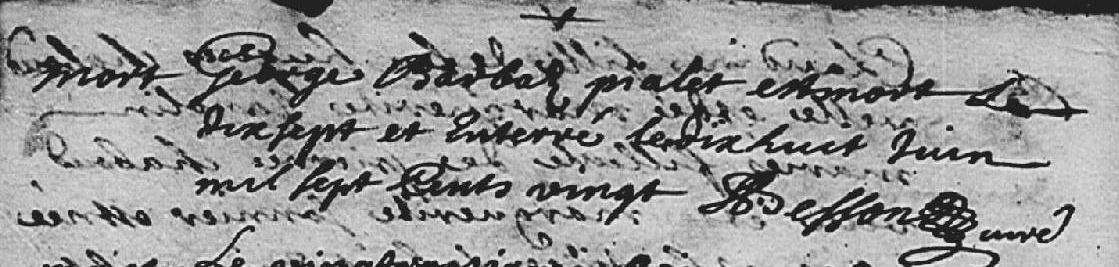 mort george Barbaz pialet est mort le
dix sept et enterré le dix huict Juin
mil sept cents vingt Besson curé